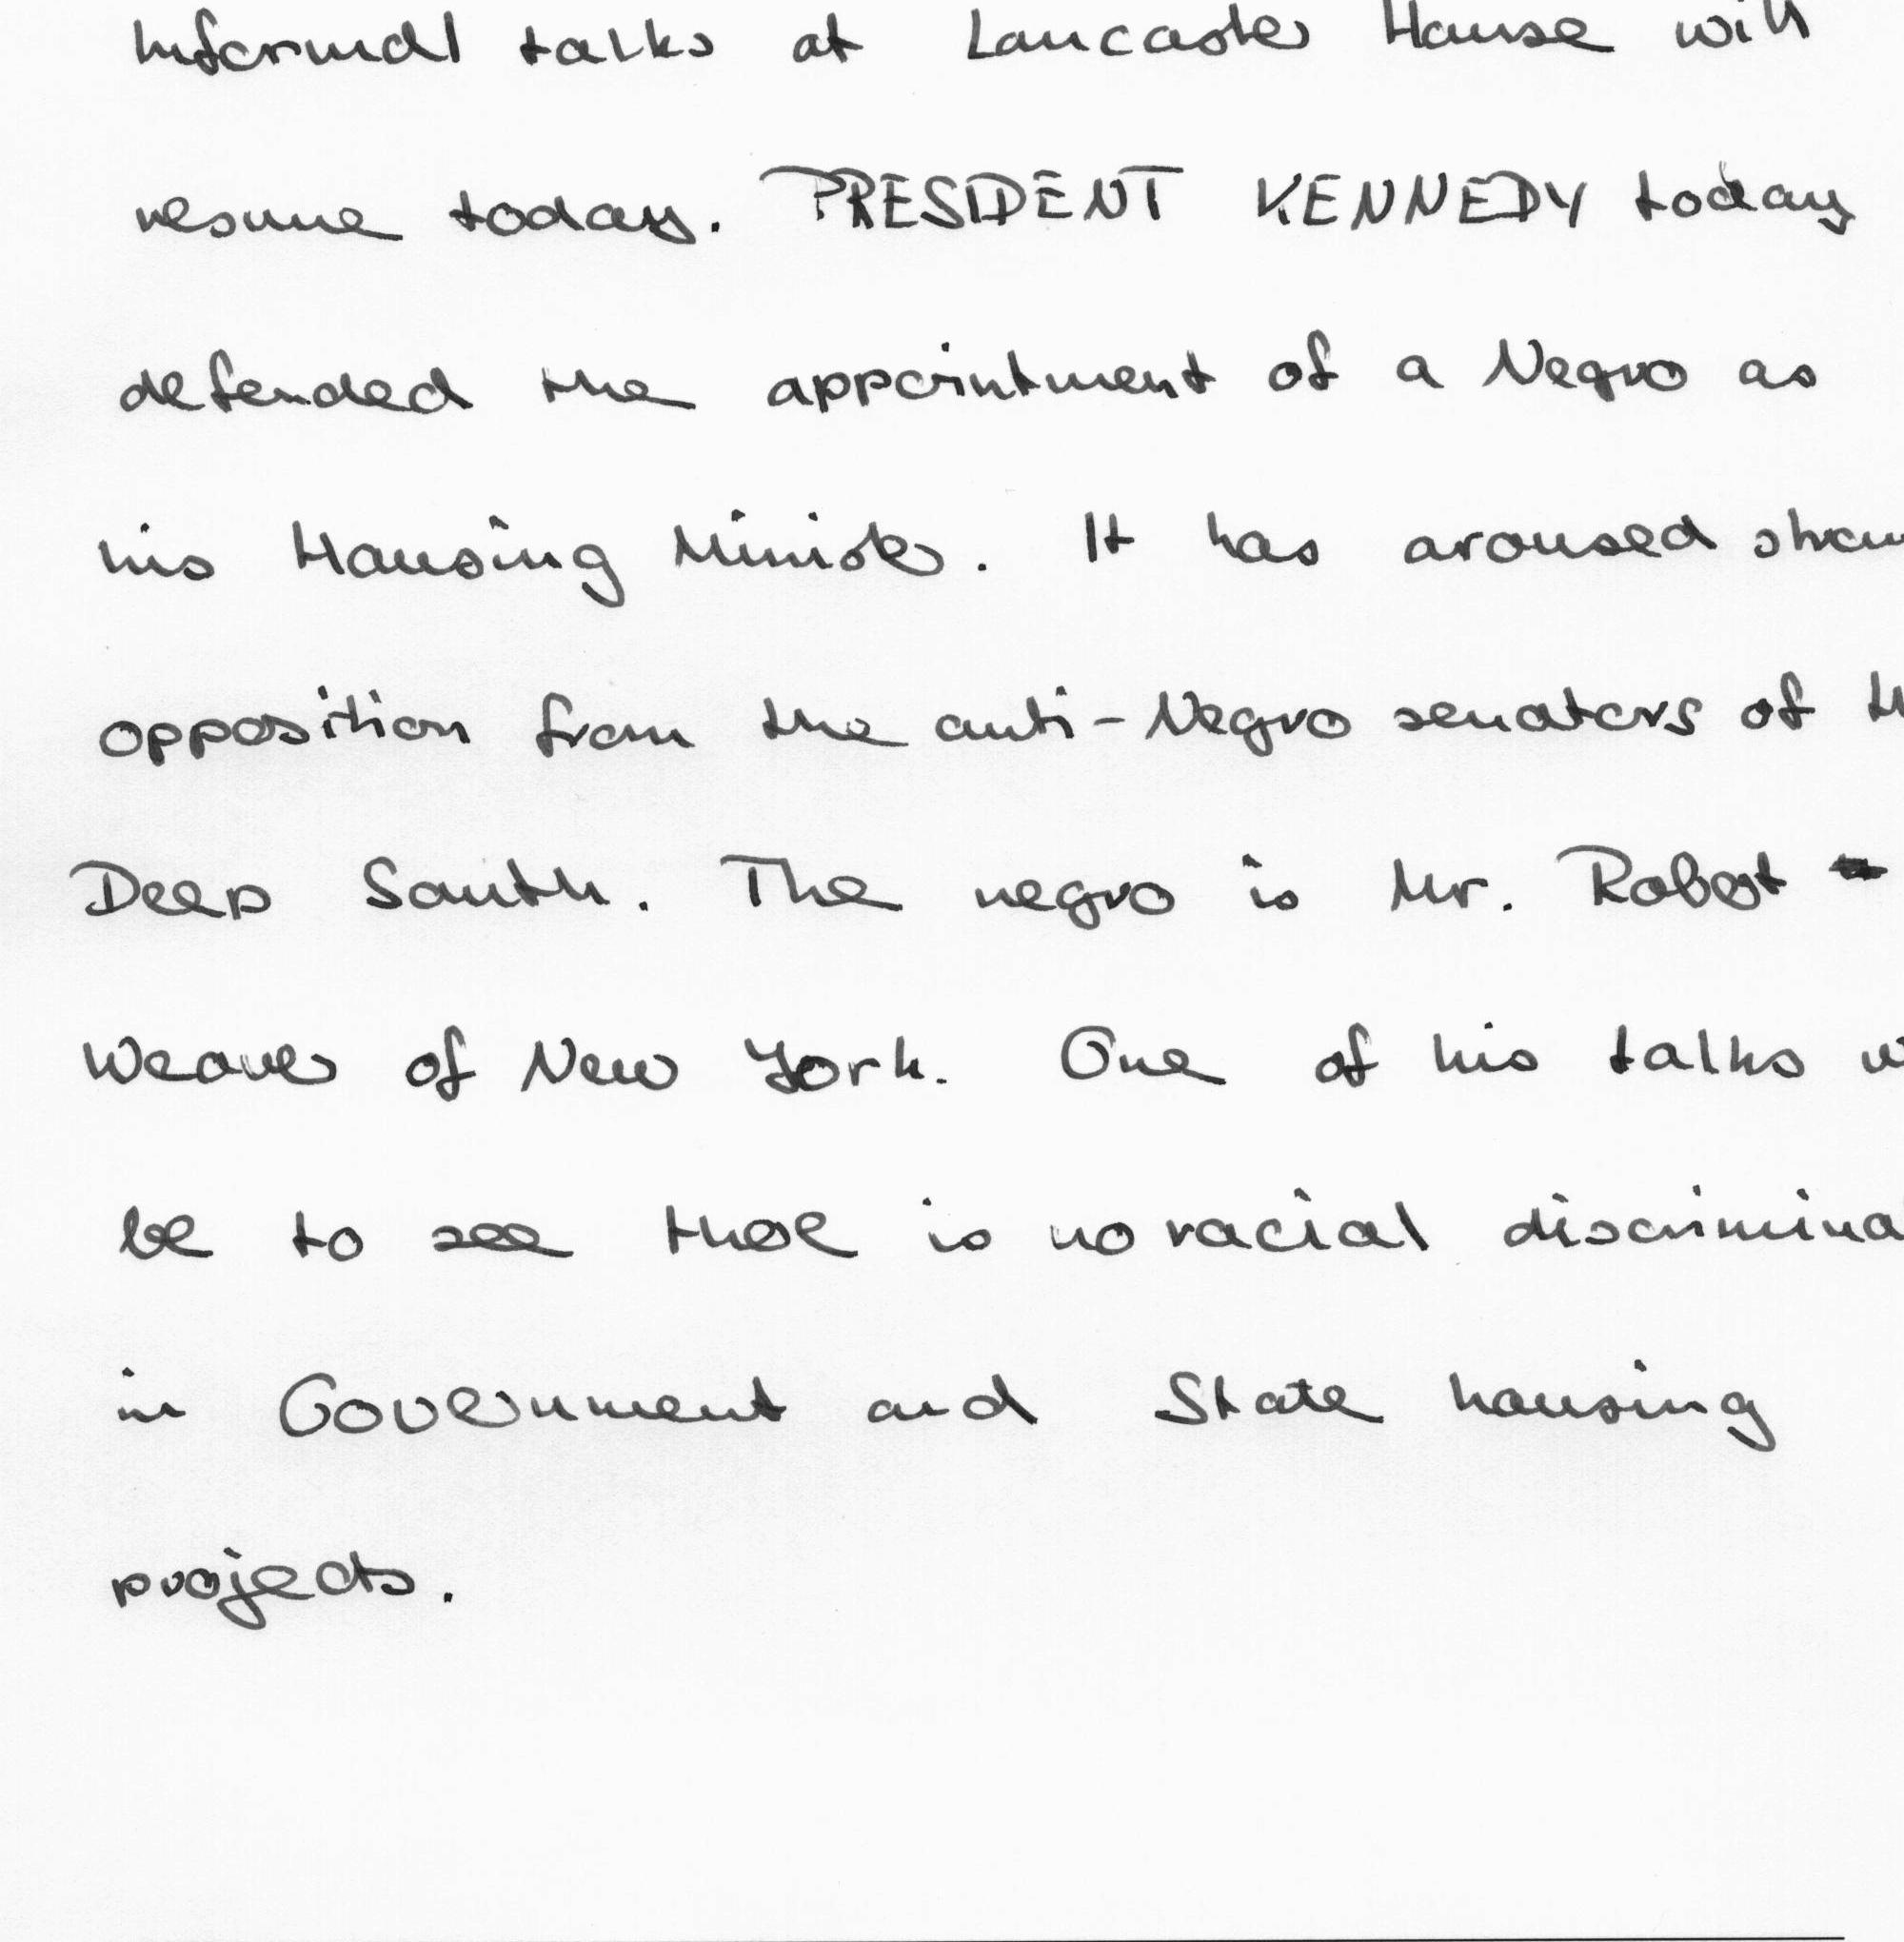 Informal talks at Lancaster House will
resume today. PRESIDENT KENNEDY today
defended the appointment of a Negro as
his Housing Minister. It has aroused
opposition from the anti-Negro senators of
Deep South. The negro is Mr. Robert
Weaver of New York. One of his talks
be to see there is no racial
in Government and State housing
projects.